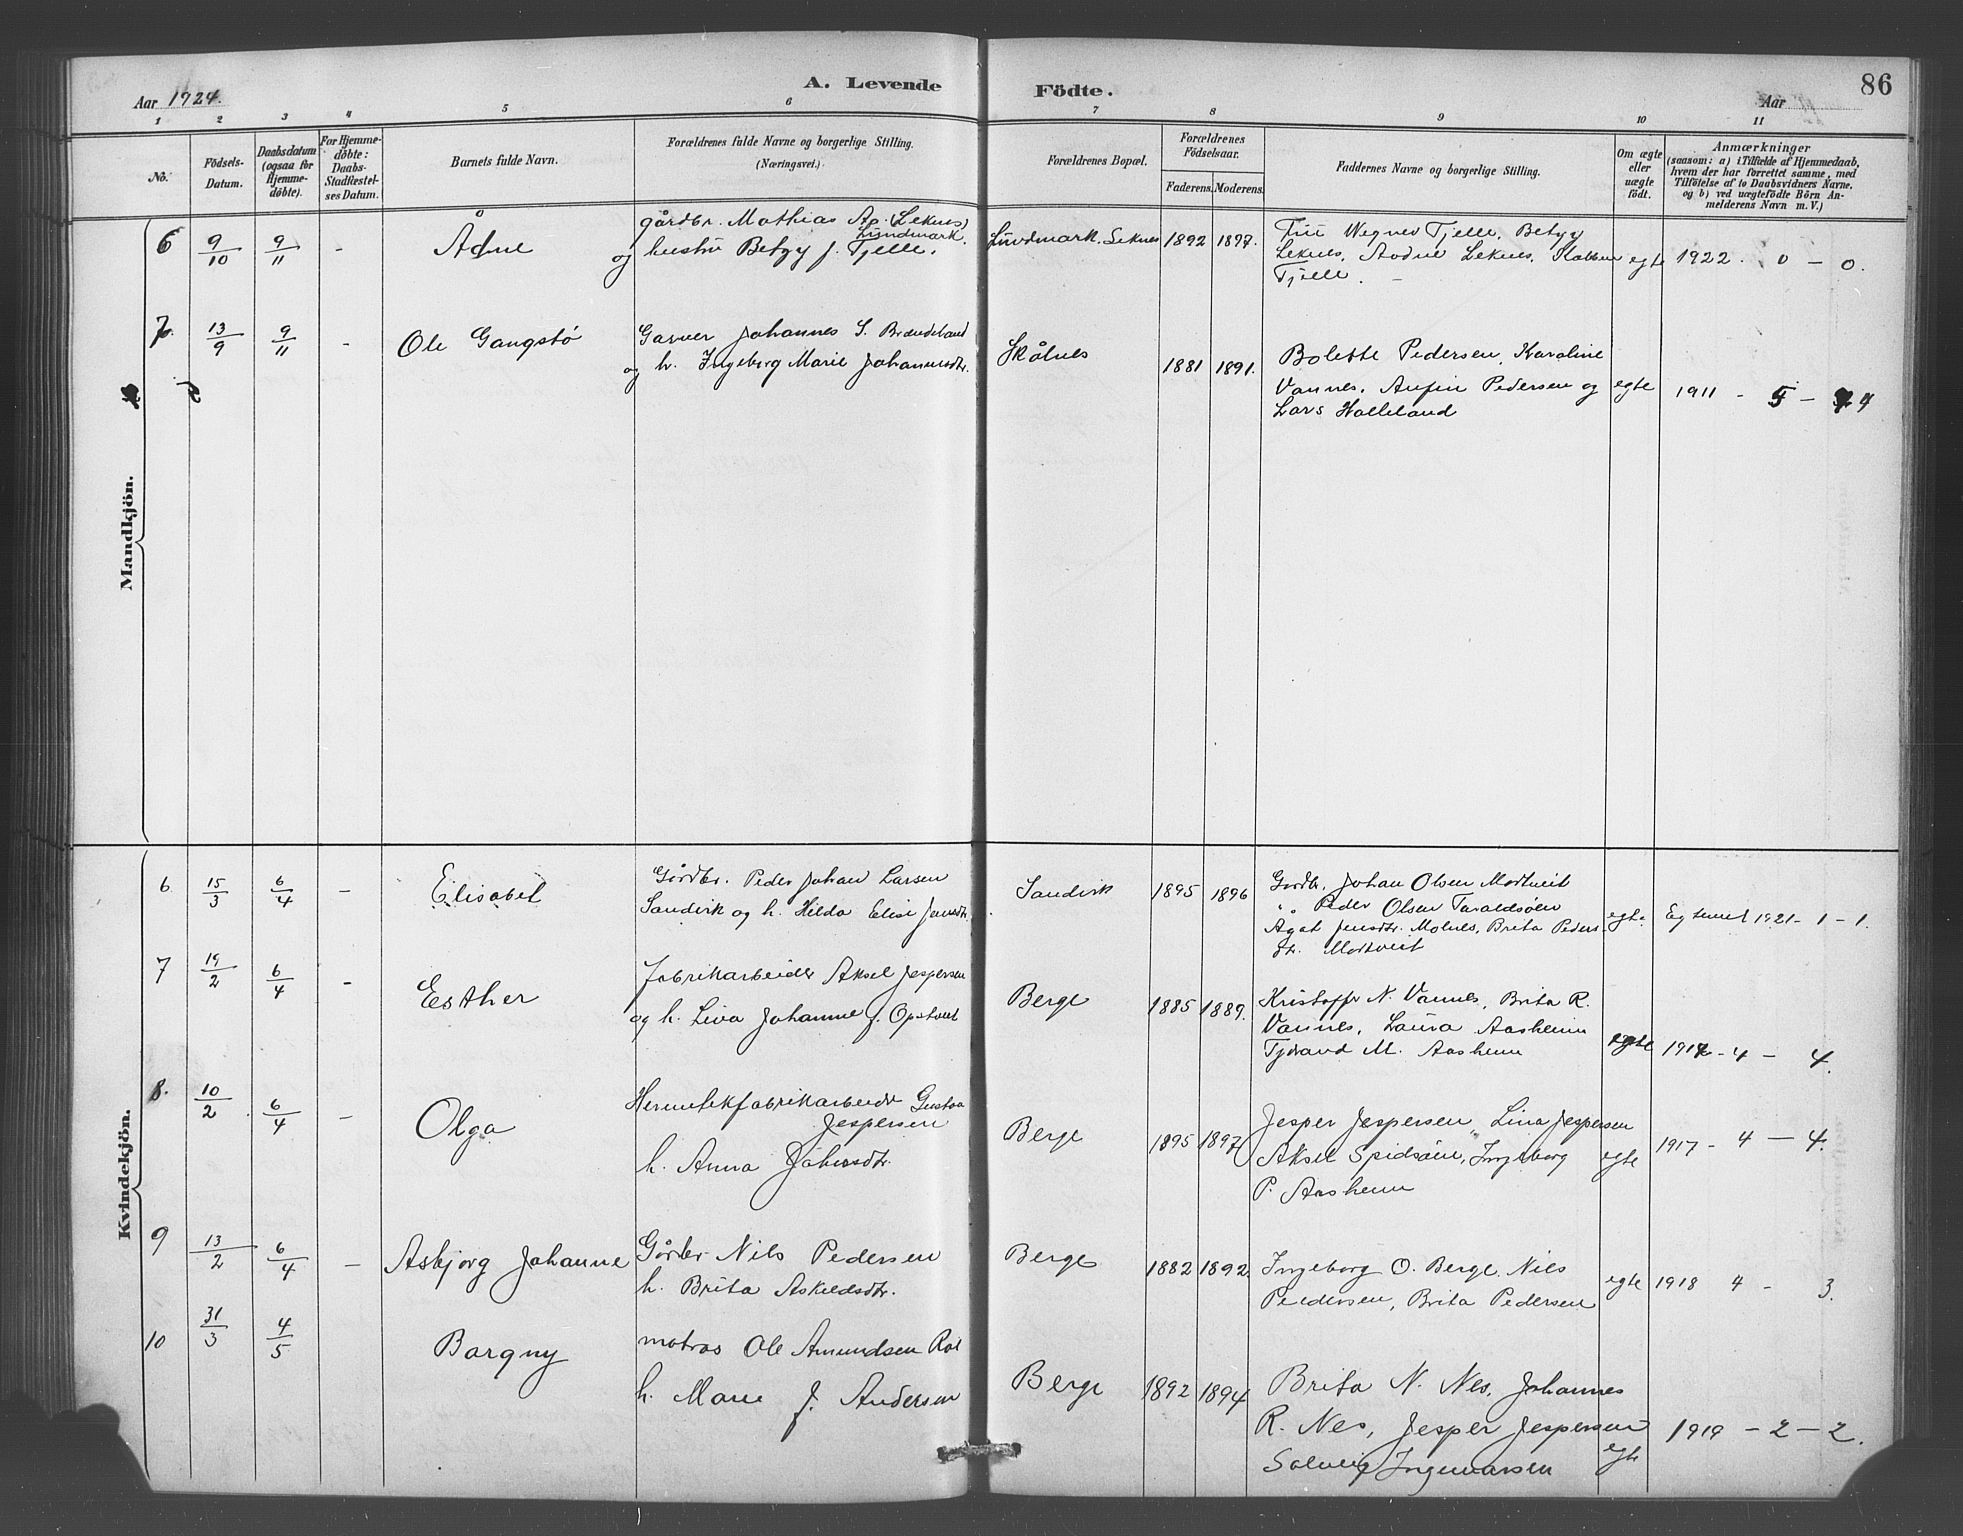 A. Levende Födte.
86
Aar 1924.
Aar
1 2 3 4 5 6 7 8 9 10 11
No.
Födsels-Datum.
Daabsdatum (ogsaa for Hjemme-döbte).
For Hjemme-döbte: Daabs-Stadfæstel-ses Datum.
Barnets fulde Navn.
Forældrenes fulde Navne og borgerlige Stilling.
(Næringsvei.)
Forældrenes Bopæl.
Forældrenes Födselsaar.
Faderens. Moderens.
Faddernes Navne og borgerlige Stilling.
Om ægte eller uægte födt.
Anmærkninger
(saasom: a) i Tilfælde af Hjemmedaab,
hvem der har forrettet samme, med
Tilföielse af to Daabsvidners Navne,
og b) ved uægtefödte Börn An-
melderens Navn m. V.)
Mandkjön.
6 9/10 9/11 - Ådne
gårdbr. Mathias Ap. (Leknes)
Lundmark.
og hustru Betzy f. Tjelle.
Lundmark. Leknes 1892 1897.
Wegner Tjelle, Betzy
Leknes, Leknes,
Tjelle. -
egte 1922. 0 - 0.
7. 13/9 9/11 - Ole Gangstø
Garver Johannes S. Brandeland
og h. Ingeborg Marie Johannesdtr.
Skålnes 1881 1891.
Bolette Pedersen, Karoline
Vannes, Anfin Pedersen og
Lars Halleland
egte 1911 - 5 - 4
Kvindekjön.
6 15/3 6/4 - Elisabet
Gårdbr. Peder Johan Larsen
Sandvik og h. Hilda Elise Jensdtr.
Sandvik 1895 1896
Gårdbr. Johan Olsen Mortveit
" Peder Olsen Taraldsøen
Agat Jensdtr. Molnes, Brita Peders
dtr. Mortveit
egte. Egteviet 1921 - 1 - 1.
7 19/2 6/4 - Esther
Fabrikarbeider Aksel Jespersen
og h. Lina Johanne f. Opstveit
Berge 1885 1889.
Kristoffer N. Vannes, Brita R.
Vannes, Laura Aasheim
M. Aasheim
egte - 4 - 4.
8. 10/2 6/4 - Olga
Hermetikfabrikarbeider Gustav
Jespersen
h. Anna Johnsdtr.
Berge 1895 1897
Jesper Jespersen, Lina Jespersen
Aksel Spidsøen, Ingeborg
P. Aasheim
egte 1917 - 4 - 4.
9 13/2 6/4 - Asbjørg Johanne
Gårdbr Nils Pedersen
h. Brita Askildsdtr.
Berge 1882 1892.
Ingeborg O. Berge, Nils
Peedersen, Brita Pedersen
egte 1918 4 - 3.
10 31/3 4/5 Borgny
matros Ole Amundsen
h. Marie f. Andersen
Berge 1892 1894
Brita N. Nes, Johannes
R. Nes, Jesper Jespersen
Solveig Ingemarsen
egte 1919 - 2 - 2.